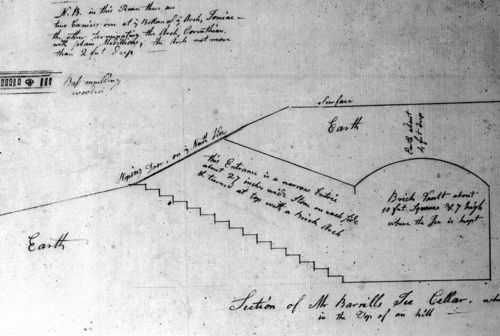 N.B. in this Room there are
two Cornices one at y Bottom of y Arch, Ionic —
the other terminating the Arch, Corinthian,
with plain Modillions, the Arch not more
than 2 feet Deep.
Base moulding
wooden
Surface
Earth
Earth about
4 feet deep
Sloping Door, on y North Side
this Entrance is a narrow Entrie
about 27 inches wide Stone on each side
& turned at top with a Brick Arch
Brick Vault about
10 feet Square & 7 high
where the Ice is kept
Earth
Section of Mr Barrells Ice Cellar. whi
in the Top of an hill